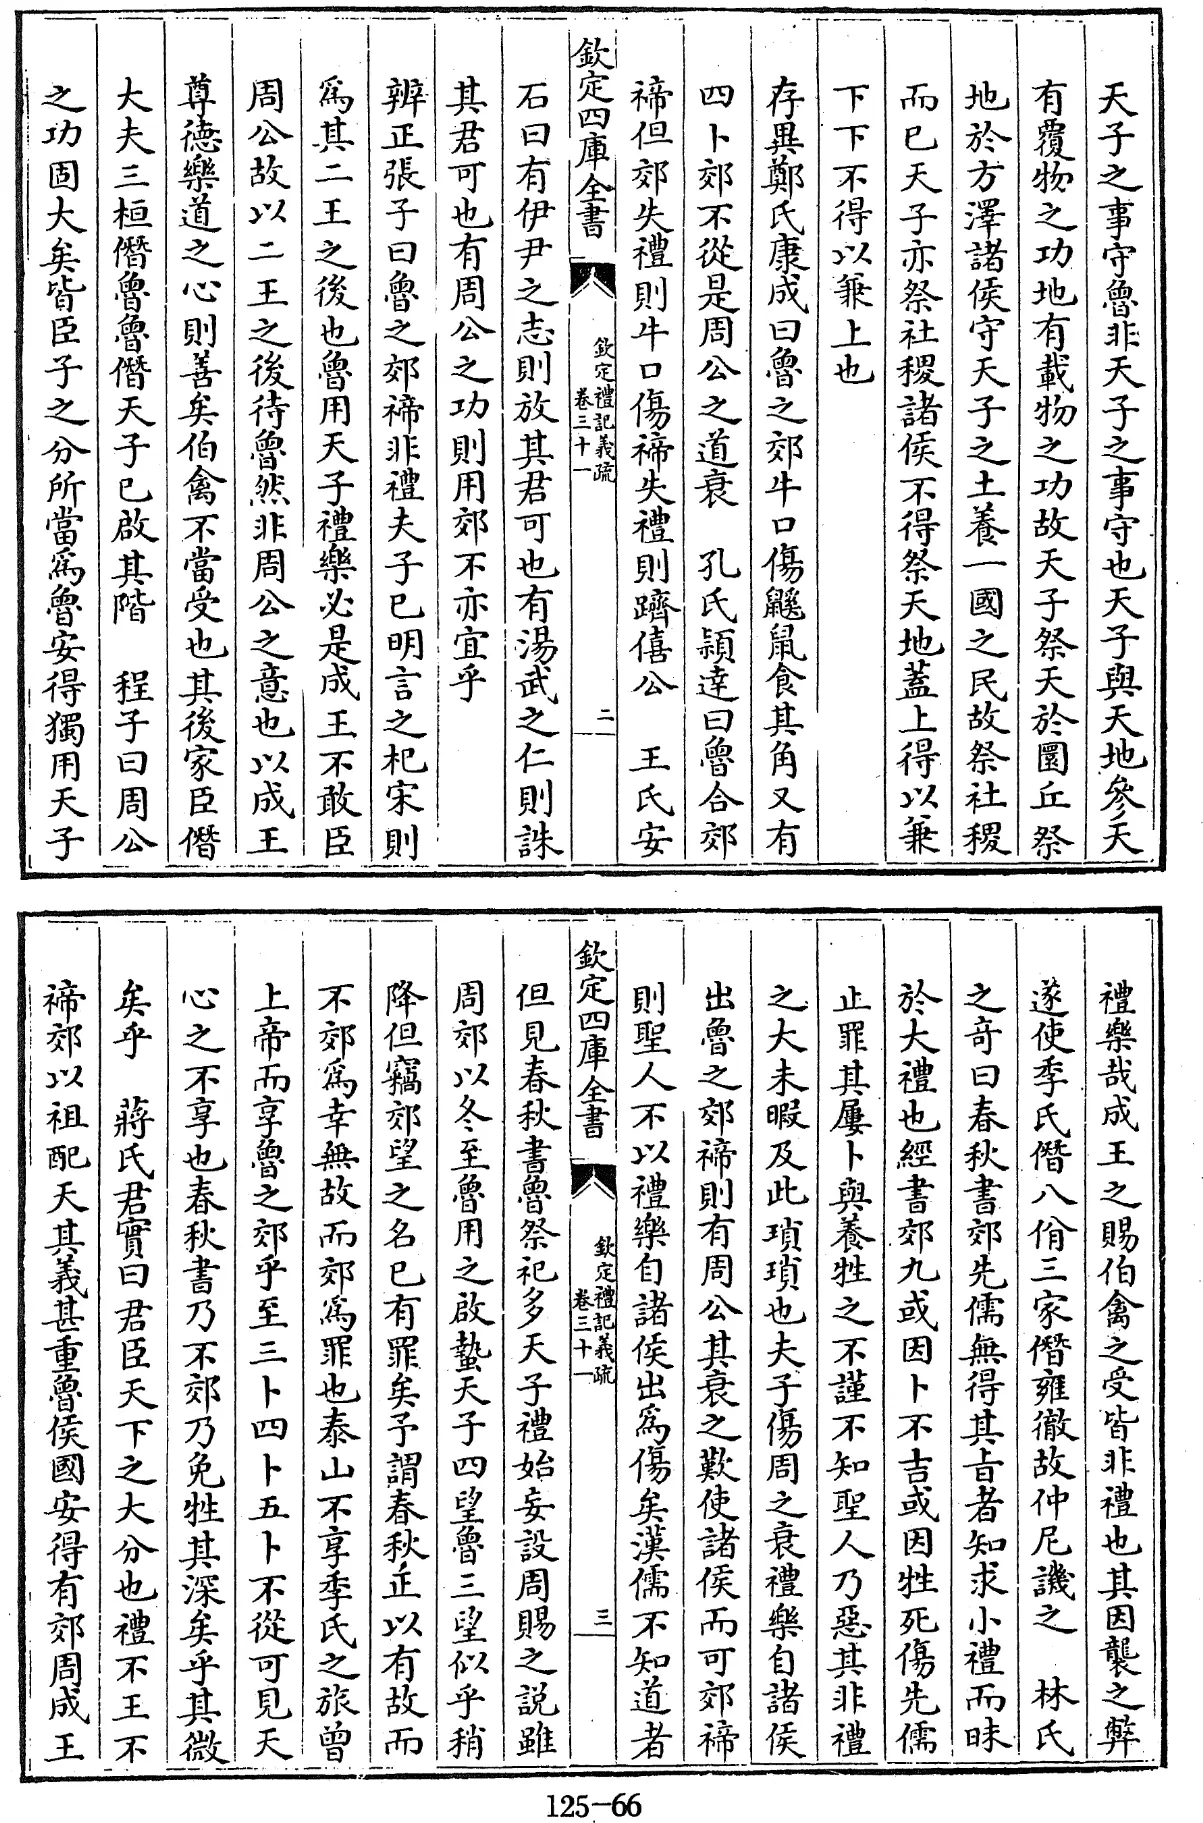 天子之事守魯非天子之事守也天子與天地參天
有覆物之功地有載物之功故天子祭天於圜丘祭
地於方澤諸侯守天子之土養一國之民故祭社稷
而已天子亦祭社稷諸侯不得祭天地蓋上得以兼
下下不得以兼上也
存異鄭氏康成曰魯之郊牛口傷鼷鼠食其角又有
四卜郊不從是周公之道衰　孔氏穎達曰魯合郊
禘但郊失禮則牛口傷禘失禮則躋僖公　王氏安
欽定四庫全書
欽定禮記義疏
卷三十一
二
石曰有伊尹之志則放其君可也有湯武之仁則誅
其君可也有周公之功則用郊不亦宜乎
辨正張子曰魯之郊禘非禮夫子已明言之杞宋則
爲其二王之後也魯用天子禮樂必是成王不敢臣
周公故以二王之後待魯然非周公之意也以成王
尊德樂道之心則善矣伯禽不當受也其後家臣僭
大夫三桓僭魯魯僭天子已啟其階　程子曰周公
之功固大矣皆臣子之分所當爲魯安得獨用天子
禮樂哉成王之賜伯禽之受皆非禮也其因襲之弊
遂使季氏僭八佾三家僭雍徹故仲尼譏之　林氏
之奇曰春秋書郊先儒無得其旨者知求小禮而昧
於大禮也經書郊九或因卜不吉或因牲死傷先儒
止罪其屢卜與養牲之不謹不知聖人乃惡其非禮
之大未暇及此瑣瑣也夫子傷周之衰禮樂自諸侯
出魯之郊禘則有周公其衰之歎使諸侯而可郊禘
則聖人不以禮樂自諸侯出爲傷矣漢儒不知道者
欽定四庫全書
欽定禮記義疏
卷三十一
三
但見春秋書魯祭祀多天子禮始妄設周賜之説雖
周郊以冬至魯用之啟蟄天子四望魯三望似乎稍
降但竊郊望之名已有罪矣予謂春秋正以有故而
不郊爲幸無故而郊爲罪也泰山不享季氏之旅曾
上帝而享魯之郊乎至三卜四卜五卜不從可見天
心之不享也春秋書乃不郊乃免牲其深矣乎其微
矣乎　蔣氏君實曰君臣天下之大分也禮不王不
禘郊以祖配天其義甚重魯侯國安得有郊周成王
125-66